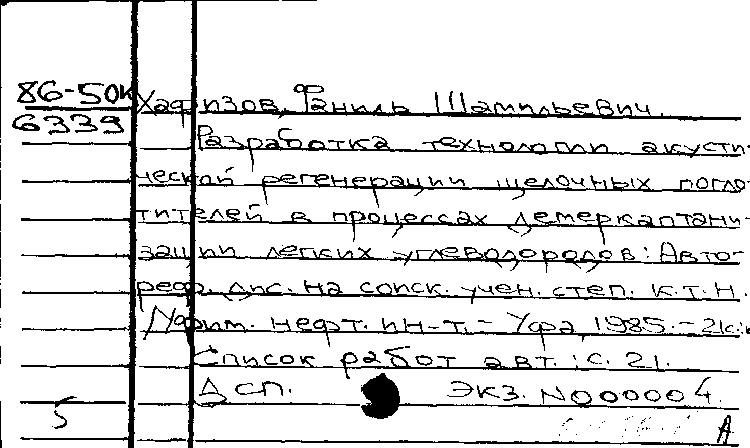 86-50к
6339
Хафизов, Фаниль Шамильевич.
Разработка технологии акусти-
ческой регенерации щелочных погло-
тителей в процессах демеркаптани-
зации легких углеводородов: Авто-
реф. дис. на соиск. учен. степ. к.т.н.
/Уфим. нефт. ин-т. - Уфа, 1985. - 21с.;
Список работ авт.: с. 21.
ДСП. ЭКЗ. N000004.
5
А